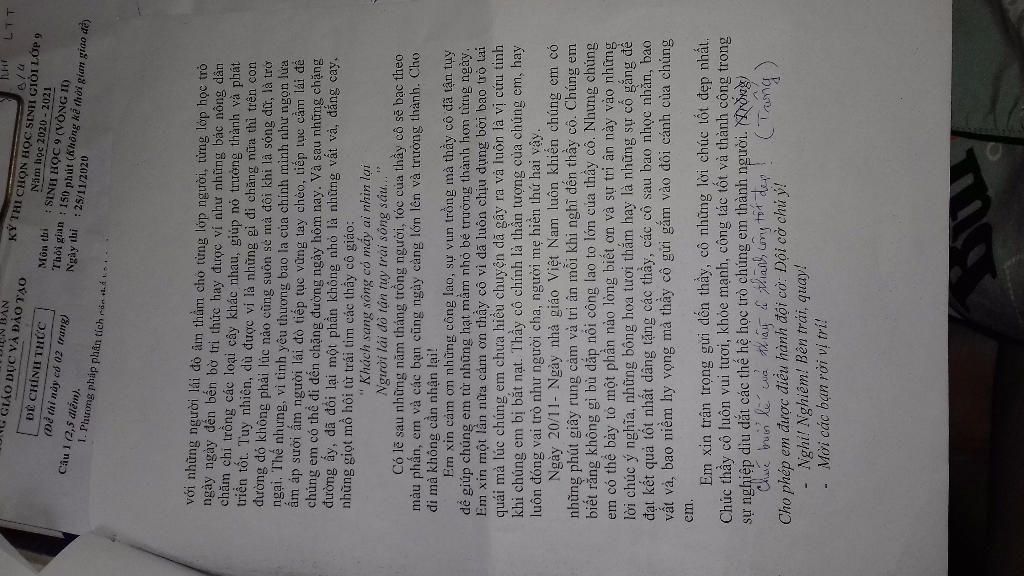 LTT
KỲ THI CHỌN HỌC SINH GIỎI LỚP 9
Năm học 2020 - 2021
GIÁO DỤC VÀ ĐÀO TẠO
Môn thi : SINH HỌC 9 (VÒNG II)
ĐỀ CHÍNH THỨC
Thời gian : 150 phút (Không kể thời gian giao đề)
(Đề thi này có 02 trang)
Ngày thi : 25/11/2020
Câu 1 (2,5 điểm).
1. Phương pháp phân tích
với những người lái đò âm thầm cho từng lớp người, từng lớp học trò
ngày ngày đến bến bờ tri thức hay được ví như những bác nông dân
chăm chỉ trồng các loại cây khác nhau, giúp nó trưởng thành và phát
triển tốt. Tuy nhiên, dù được ví là những gì đi chăng nữa thì trên con
đường đó không phải lúc nào cũng suôn sẻ mà đôi khi là sóng dữ, là trở
ngại. Thế nhưng, vì tình yêu thương bao la của chính mình như ngọn lửa
ấm áp sưởi ấm người lái đò tiếp tục vững tay chèo, tiếp tục cầm lái để
chúng em có thể đi đến chặng đường ngày hôm nay. Và sau những chặng
đường ấy, đã đổi lại một phần không nhỏ là những vất vả, đắng cay,
những giọt mồ hôi từ trái tim các thầy cô giáo:
" Khách sang sông có mấy ai nhìn lại
Người lái đò tận tụy trải sông sâu.."
Có lẽ sau những năm tháng trồng người, tóc của thầy cô sẽ bạc theo
màu phấn, em và các bạn cũng ngày càng lớn lên và trưởng thành. Cho
đi mà không cần nhận lại!
Em xin cảm ơn những công lao, sự vun trồng mà thầy cô đã tận tụy
để giúp chúng em từ những hạt mầm nhỏ bé trưởng thành hơn từng ngày.
Em xin một lần nữa cảm ơn thầy cô vì đã luôn chịu đựng bởi bao trò tai
quái mà lúc chúng em chưa hiểu chuyện đã gây ra và luôn là vị cứu tinh
khi chúng em bị bắt nạt. Thầy cô chính là thần tượng của chúng em, hay
luôn đóng vai trò như người cha, người mẹ hiền thứ hai vậy.
Ngày 20/11- Ngày nhà giáo Việt Nam luôn khiến chúng em có
những phút giây rung cảm và tri ân mỗi khi nghĩ đến thầy cô. Chúng em
biết rằng không gì bù đắp nổi công lao to lớn của thầy cô. Nhưng chúng
em có thể bày tỏ một phần nào lòng biết ơn và sự tri ân này vào những
lời chúc ý nghĩa, những bông hoa tươi thắm hay là những sự cố gắng để
đạt kết quả tốt nhất dâng tặng các thầy, các cô sau bao nhọc nhằn, bao
vất vả, bao niềm hy vọng mà thầy cô gửi gắm vào đôi cánh của chúng
em.
Em xin trân trọng gửi đến thầy, cô những lời chúc tốt đẹp nhất.
Chúc thầy cô luôn vui tươi, khỏe mạnh, công tác tốt và thành công trong
sự nghiệp dìu dắt các thế hệ học trò chúng em thành người.
Chúc buổi lễ của thành công tốt đẹp! (Trang)
Cho phép em được điều hành đội cờ: Đội cờ chú ý!
- Nghỉ! Nghiêm! Bên trái, quay!
- Mời các bạn rời vị trí!